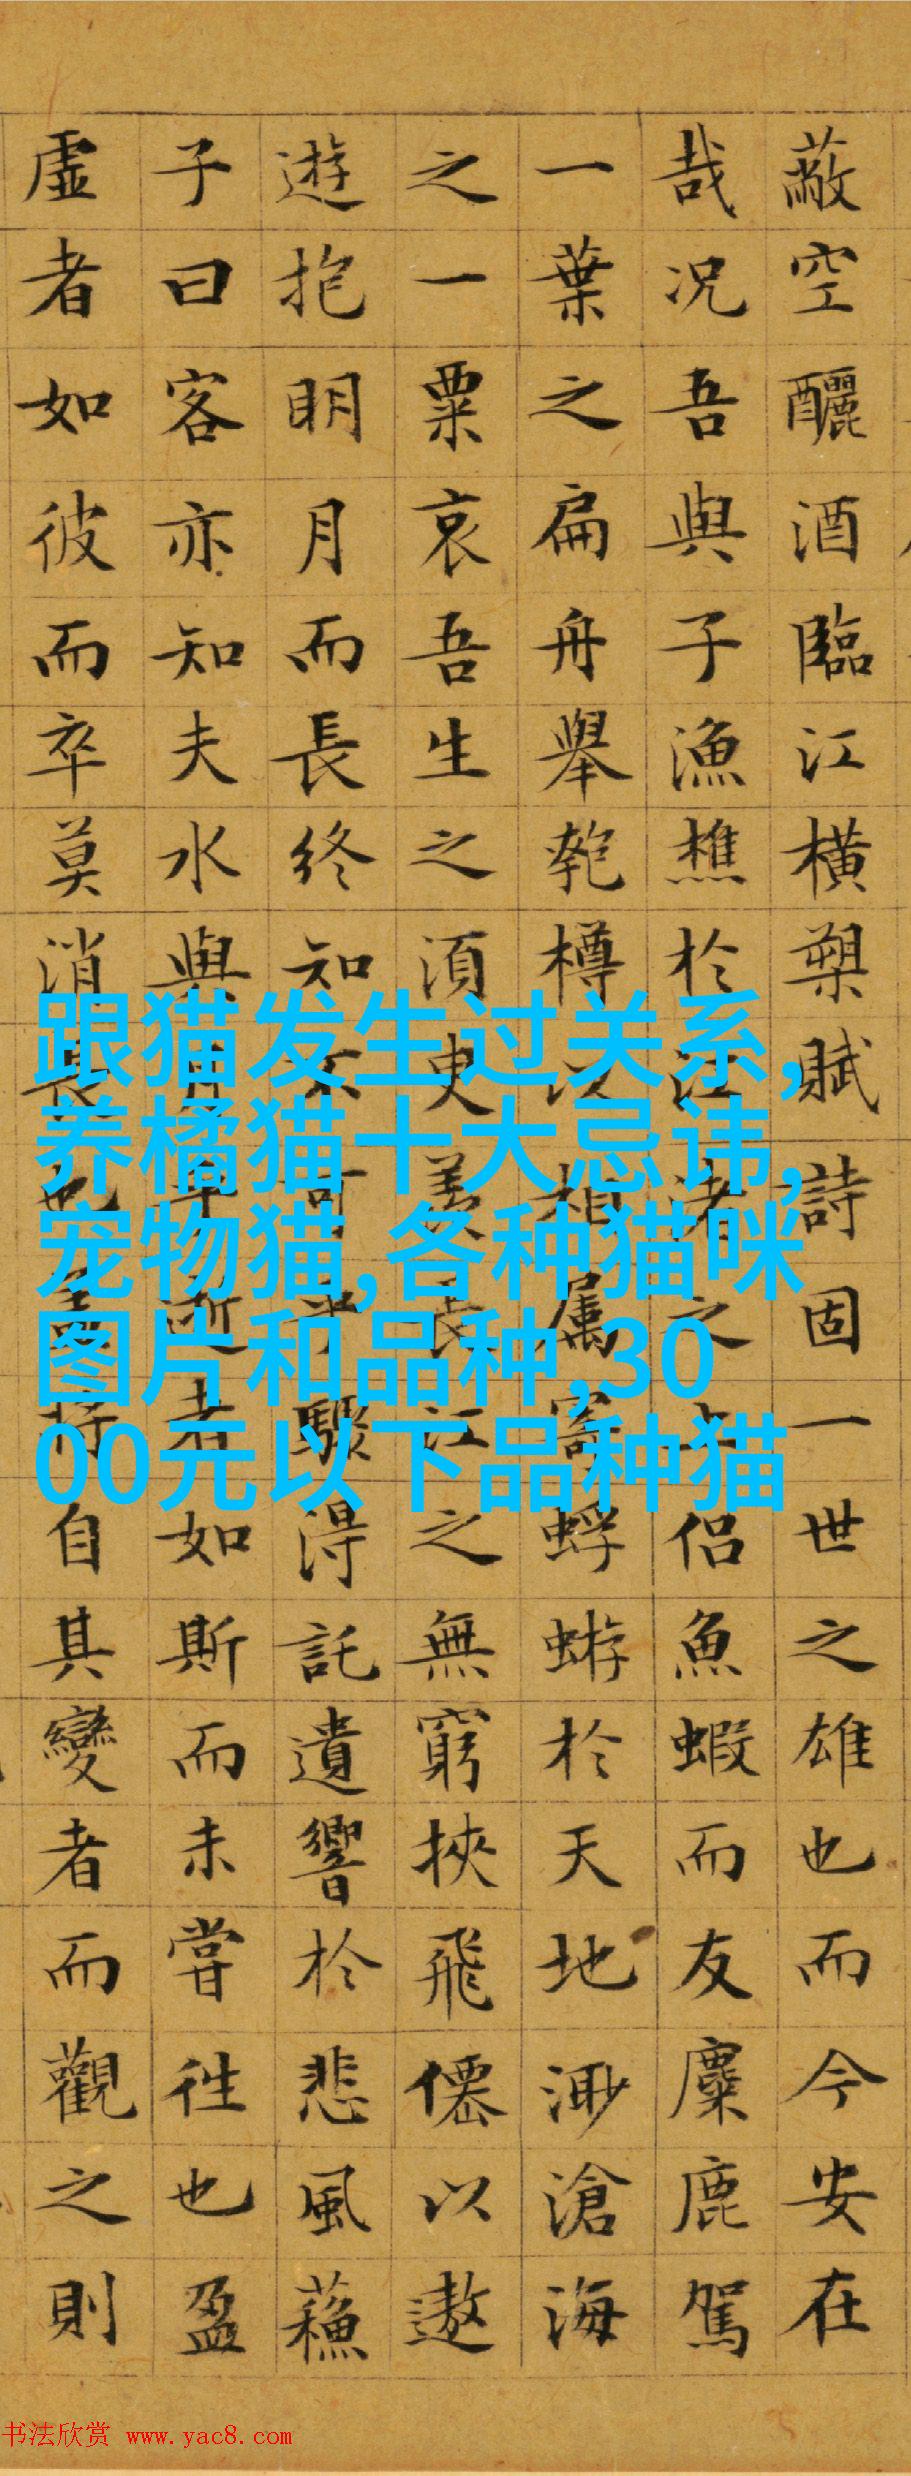 蔽空釃酒臨江橫槊賦詩固一世之雄也而今安在
哉况吾與子漁樵於江渚之上侣魚蝦而友麋鹿駕
一葉之扁舟舉匏樽以相属寄蜉蝣於天地渺滄海
之一粟哀吾生之須臾羨長江之無窮挾飛僊以遨
遊抱明月而長終知不可乎驟得託遺響於悲風蘓
子曰客亦知夫水與月乎逝者如斯而未嘗往也盈
虛者如彼而卒莫消長也盖将自其變者而觀之則
跟猫发生过关系,
养橘猫十大忌讳,
宠物猫,各种猫咪
图片和品种,30
00元以下品种猫
书法欣赏 www.yac8.com